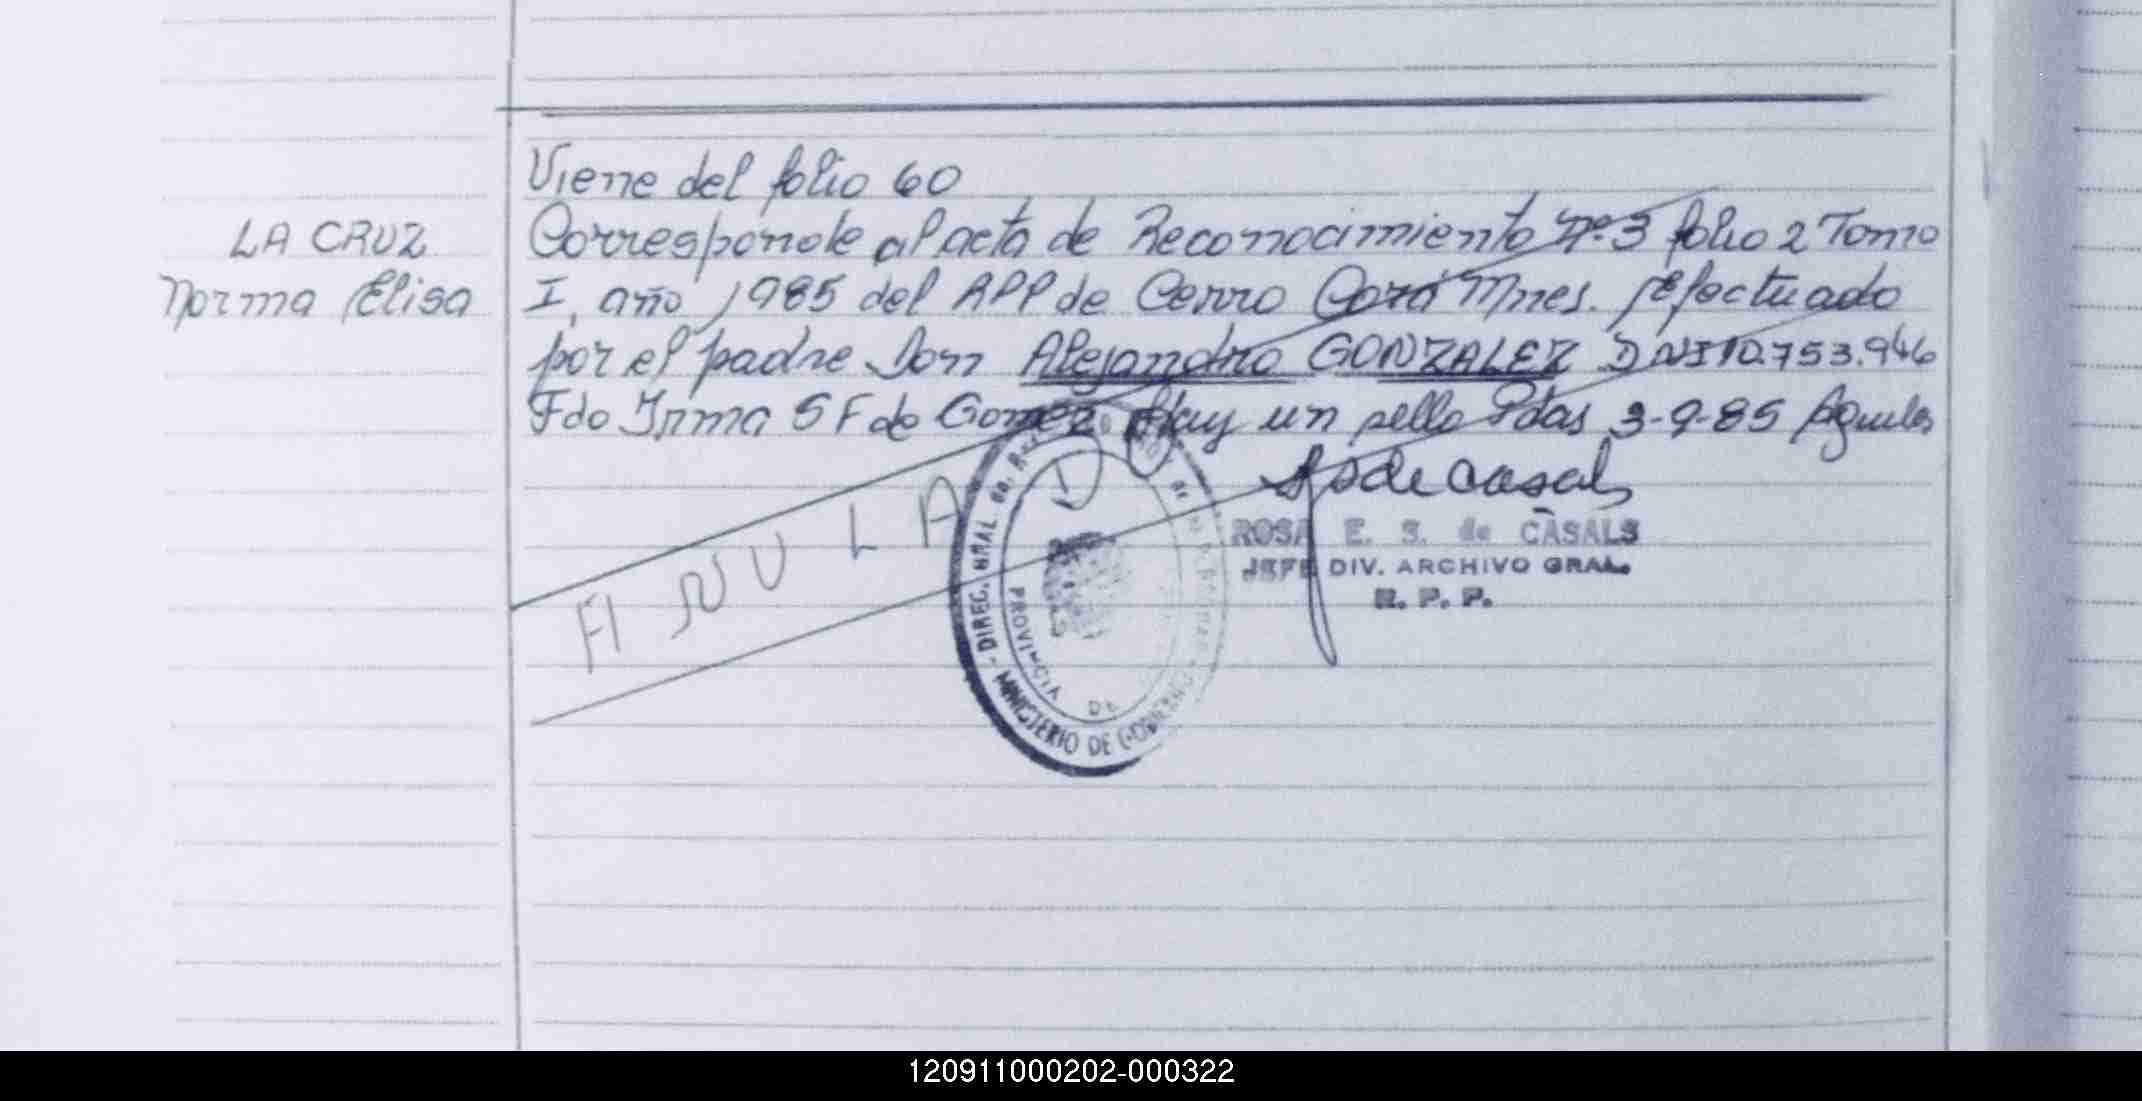 Viene del folio 60
LA CRUZ
Norma Elisa
Corresponde al acta de Reconocimiento Nº 3 folio 2 Tomo
I, año 1985 del RPP de Cerro Corá Mnes. Efectuado
por el padre Don Alejandro GONZALEZ DNI 10.753.946
Fdo Irma S F de Gomez Hay un sello Pdas 3-9-85
de Casals
ANULA
ROSA E. S. de CASALS
JEFE DIV. ARCHIVO GRAL.
R. P. P.
DIREC. GRAL. de
PROVINCIA DE
MINISTERIO DE GOBIERNO
120911000202-000322